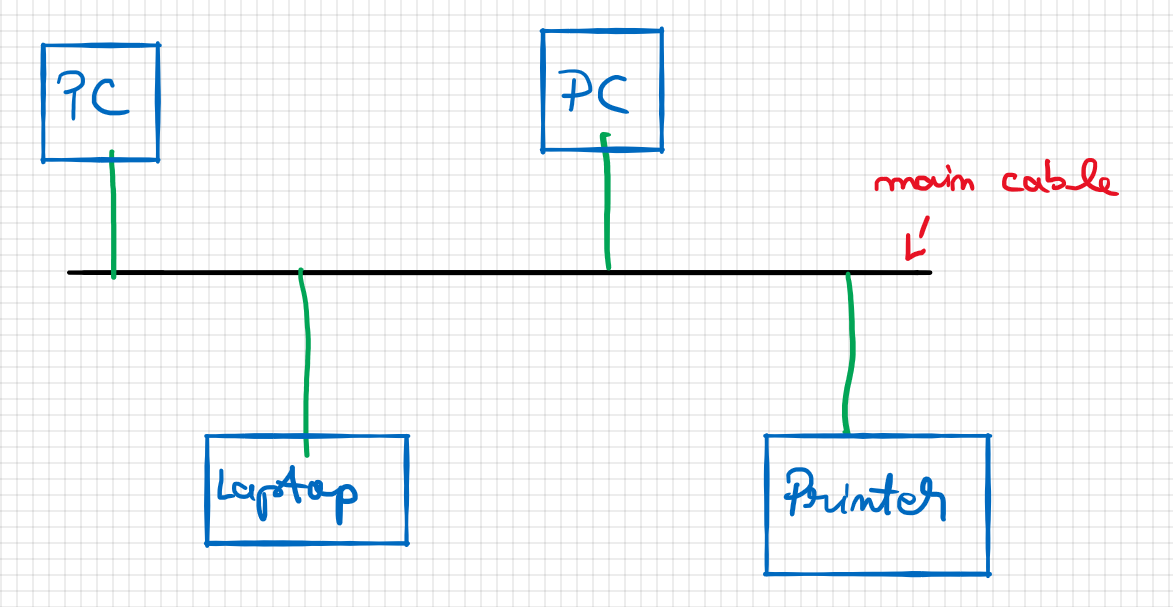 PC
PC
main cable
Laptop
Printer